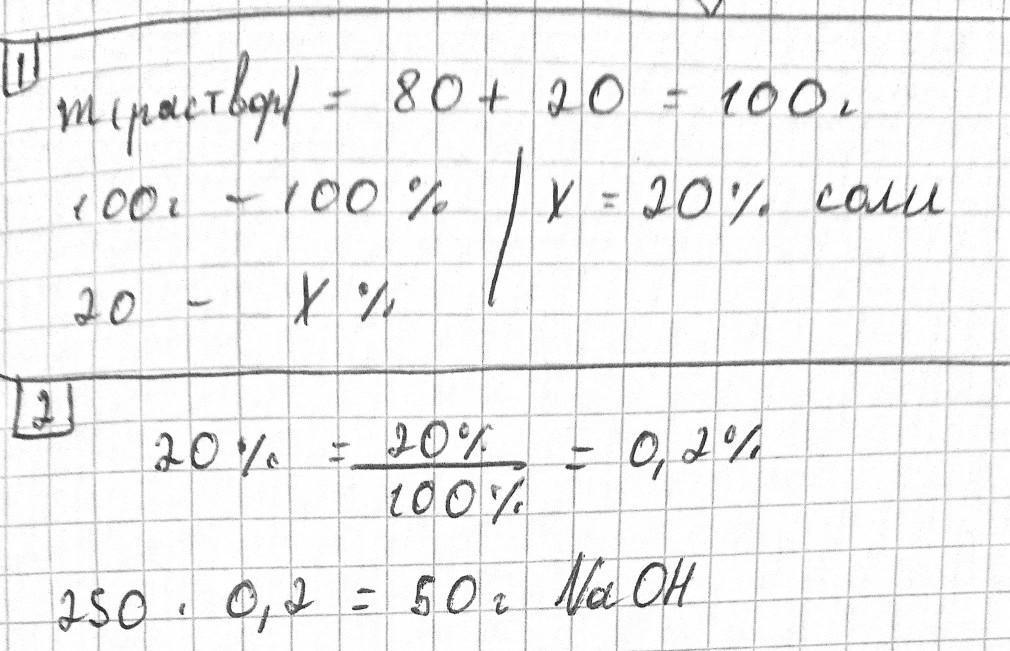 1
m(раствор) = 80 + 20 = 100г
100г - 100 % / x = 20% соли
20 - x %
2
20% = 20% / 100% = 0,2%
250 · 0,2 = 50г NaOH